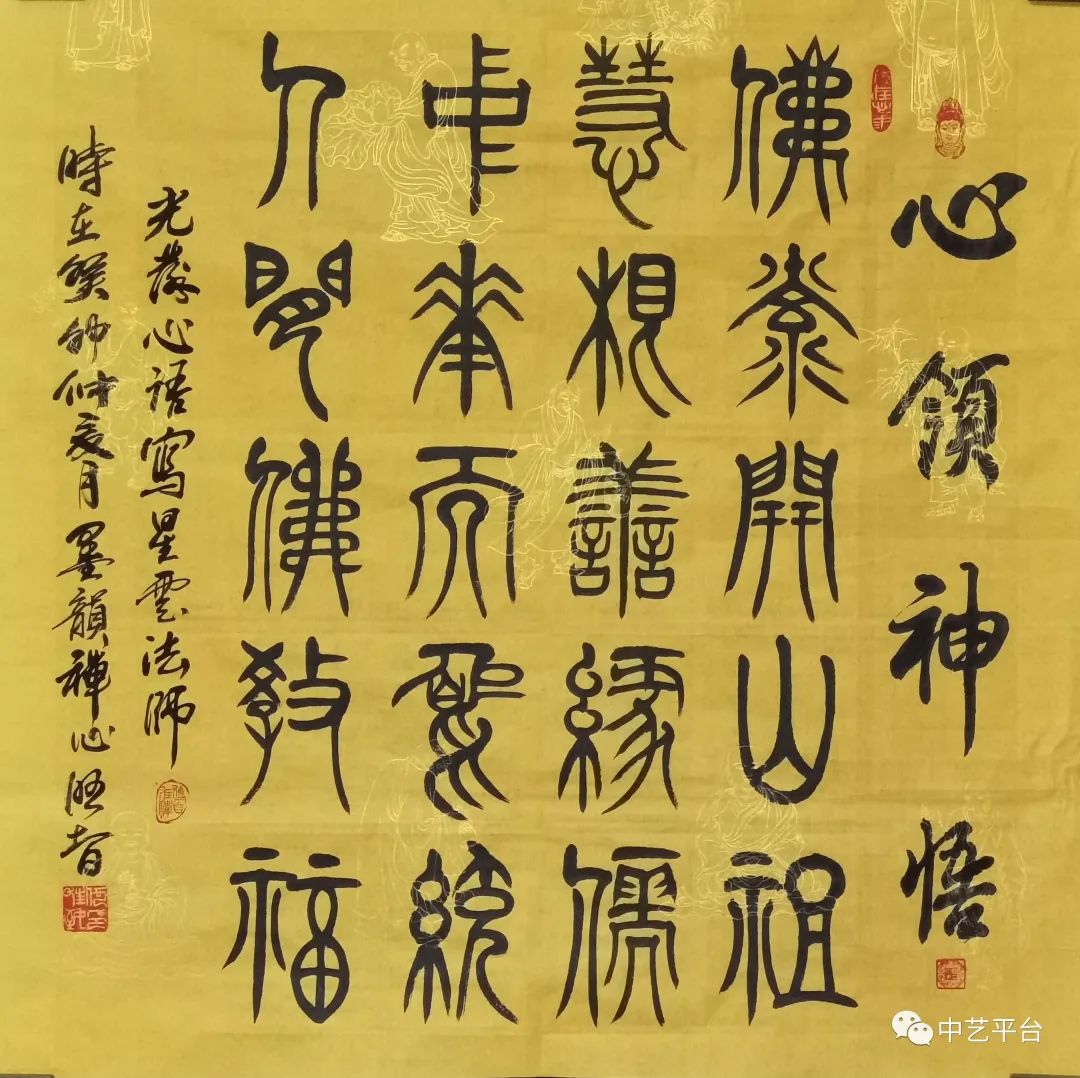 心領神悟
佛素開山祖
慧根善緣儒
中華統
人間佛教福
心語寫星雲法師
時在癸卯仲夏月墨韻禪心悟智
中艺平台